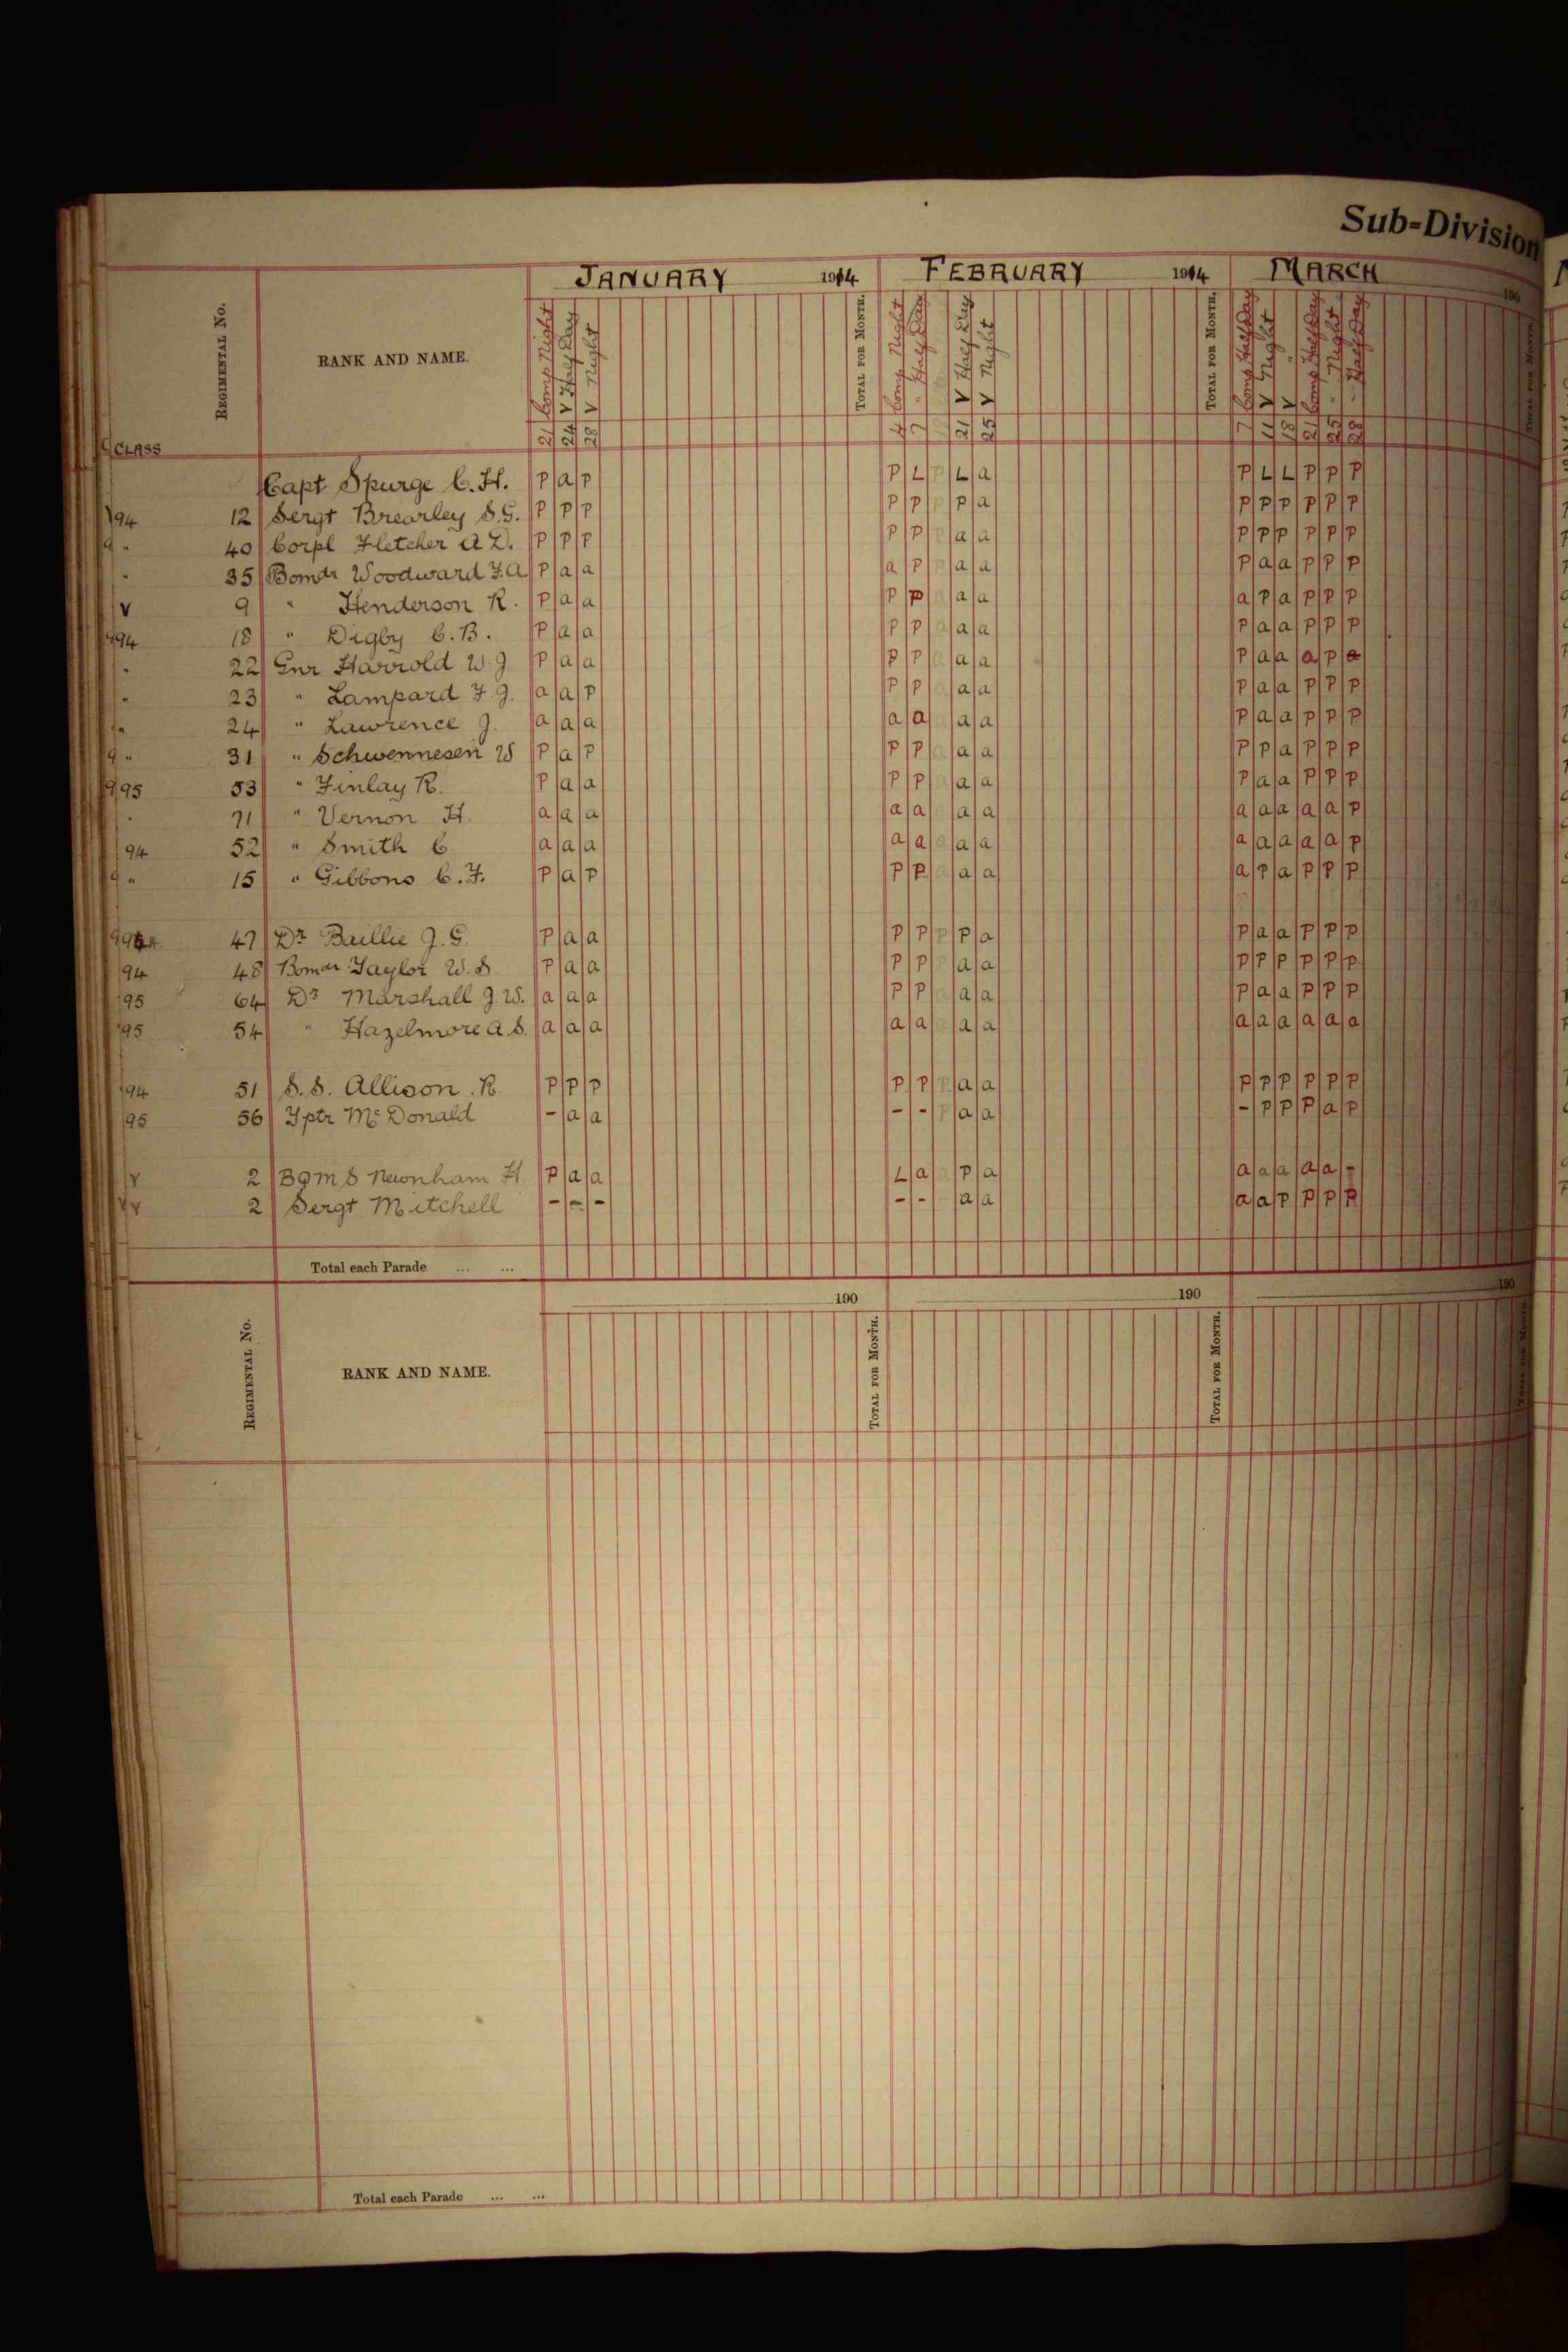 Sub-Division
JANUARY 1914 FEBRUARY 1914 MARCH 190
REGIMENTAL No. RANK AND NAME. TOTAL FOR MONTH. TOTAL FOR MONTH. TOTAL FOR MONTH.
21 Comp Night 24 V Half Day 28 V Night 4 Comp Night 7 " Half Day 21 V Half Day 25 V Night 7 Comp Half Day 11 V Night 18 V " 21 Comp Half Day 25 " Night 28 " Half Day
CLASS
Capt Spurge C. H. P a P P L P L a P L L P P P
94 12 Sergt Brearley S.G. P P P P P P P a P P P P P P
" 40 Corpl Fletcher A D. P P P P P P a a P P P P P P
" 35 Bomdr Woodward F.A P a a a P P a a P a a P P P
V 9 " Henderson R. P a a P P a a a a P a P P P
94 18 " Digby C. B. P a a P P a a a P a a P P P
" 22 Gnr Harrold W. J P a a P P a a a P a a a P a
" 23 " Lampard F. J. a a P P P a a a P a a P P P
" 24 " Lawrence J. a a a a a a a P a a P P P
" 31 " Schwennesen W P a P P P a a a P P a P P P
95 53 " Finlay R. P a a P P a a a P a a P P P
" 71 " Vernon H. a a a a a a a a a a a a a P
94 52 " Smith C a a a a a a a a a a a a a P
" 15 " Gibbons C. F. P a P P P a a a a P a P P P
47 Dr Baillie J. G. P a a P P P P a P a a P P P
94 48 Bomdr Taylor W. S P a a P P P a a P P P P P P
95 64 Dr Marshall J. W. a a a P P a a a P a a P P P
95 54 " Hazelmore A. S. a a a a a a a a a a a a a a
94 51 S. S. Allison. R. P P P P P P a a P P P P P P
95 56 Tptr McDonald - a a - - P a a - P P P a P
V 2 BQMS Newnham H P a a L a a P a a a a a a -
V 2 Sergt Mitchell - - - - - - a a a a P P P P
Total each Parade ... ...
190 190 190
REGIMENTAL No. RANK AND NAME. TOTAL FOR MONTH. TOTAL FOR MONTH. TOTAL FOR MONTH.
Total each Parade ... ...